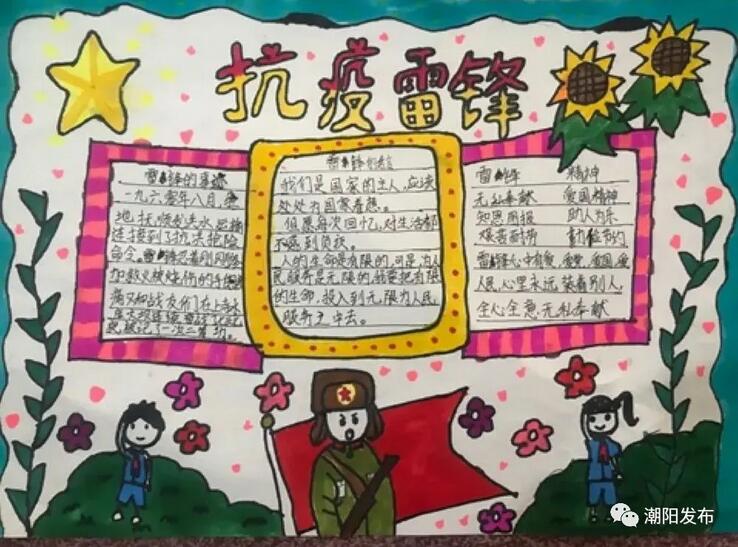 抗疫雷锋
雷锋的事迹
一九六零年八月,
地抚顺发洪水,运输
连接到了抗洪抢险
命令。雷锋忍着刚刚
加救火被烧伤的手
痛又和战友们在上寺水
被记了一次二等功。
雷锋
我们是国家的主人,应该
处处为国家着想。
但愿每次回忆,对生活都
不感到负疚。
人的生命是有限的,可是,为人
民服务是无限的,我要把有限
的生命,投入到无限为人民
服务之中去。
雷锋 精神
无私奉献 爱国精神
知恩图报 助人为乐
艰苦耐劳 勤俭节约
雷锋心中有爱,爱党,爱国,爱
人民,心里永远装着别人,
全心全意,无私奉献
潮阳发布